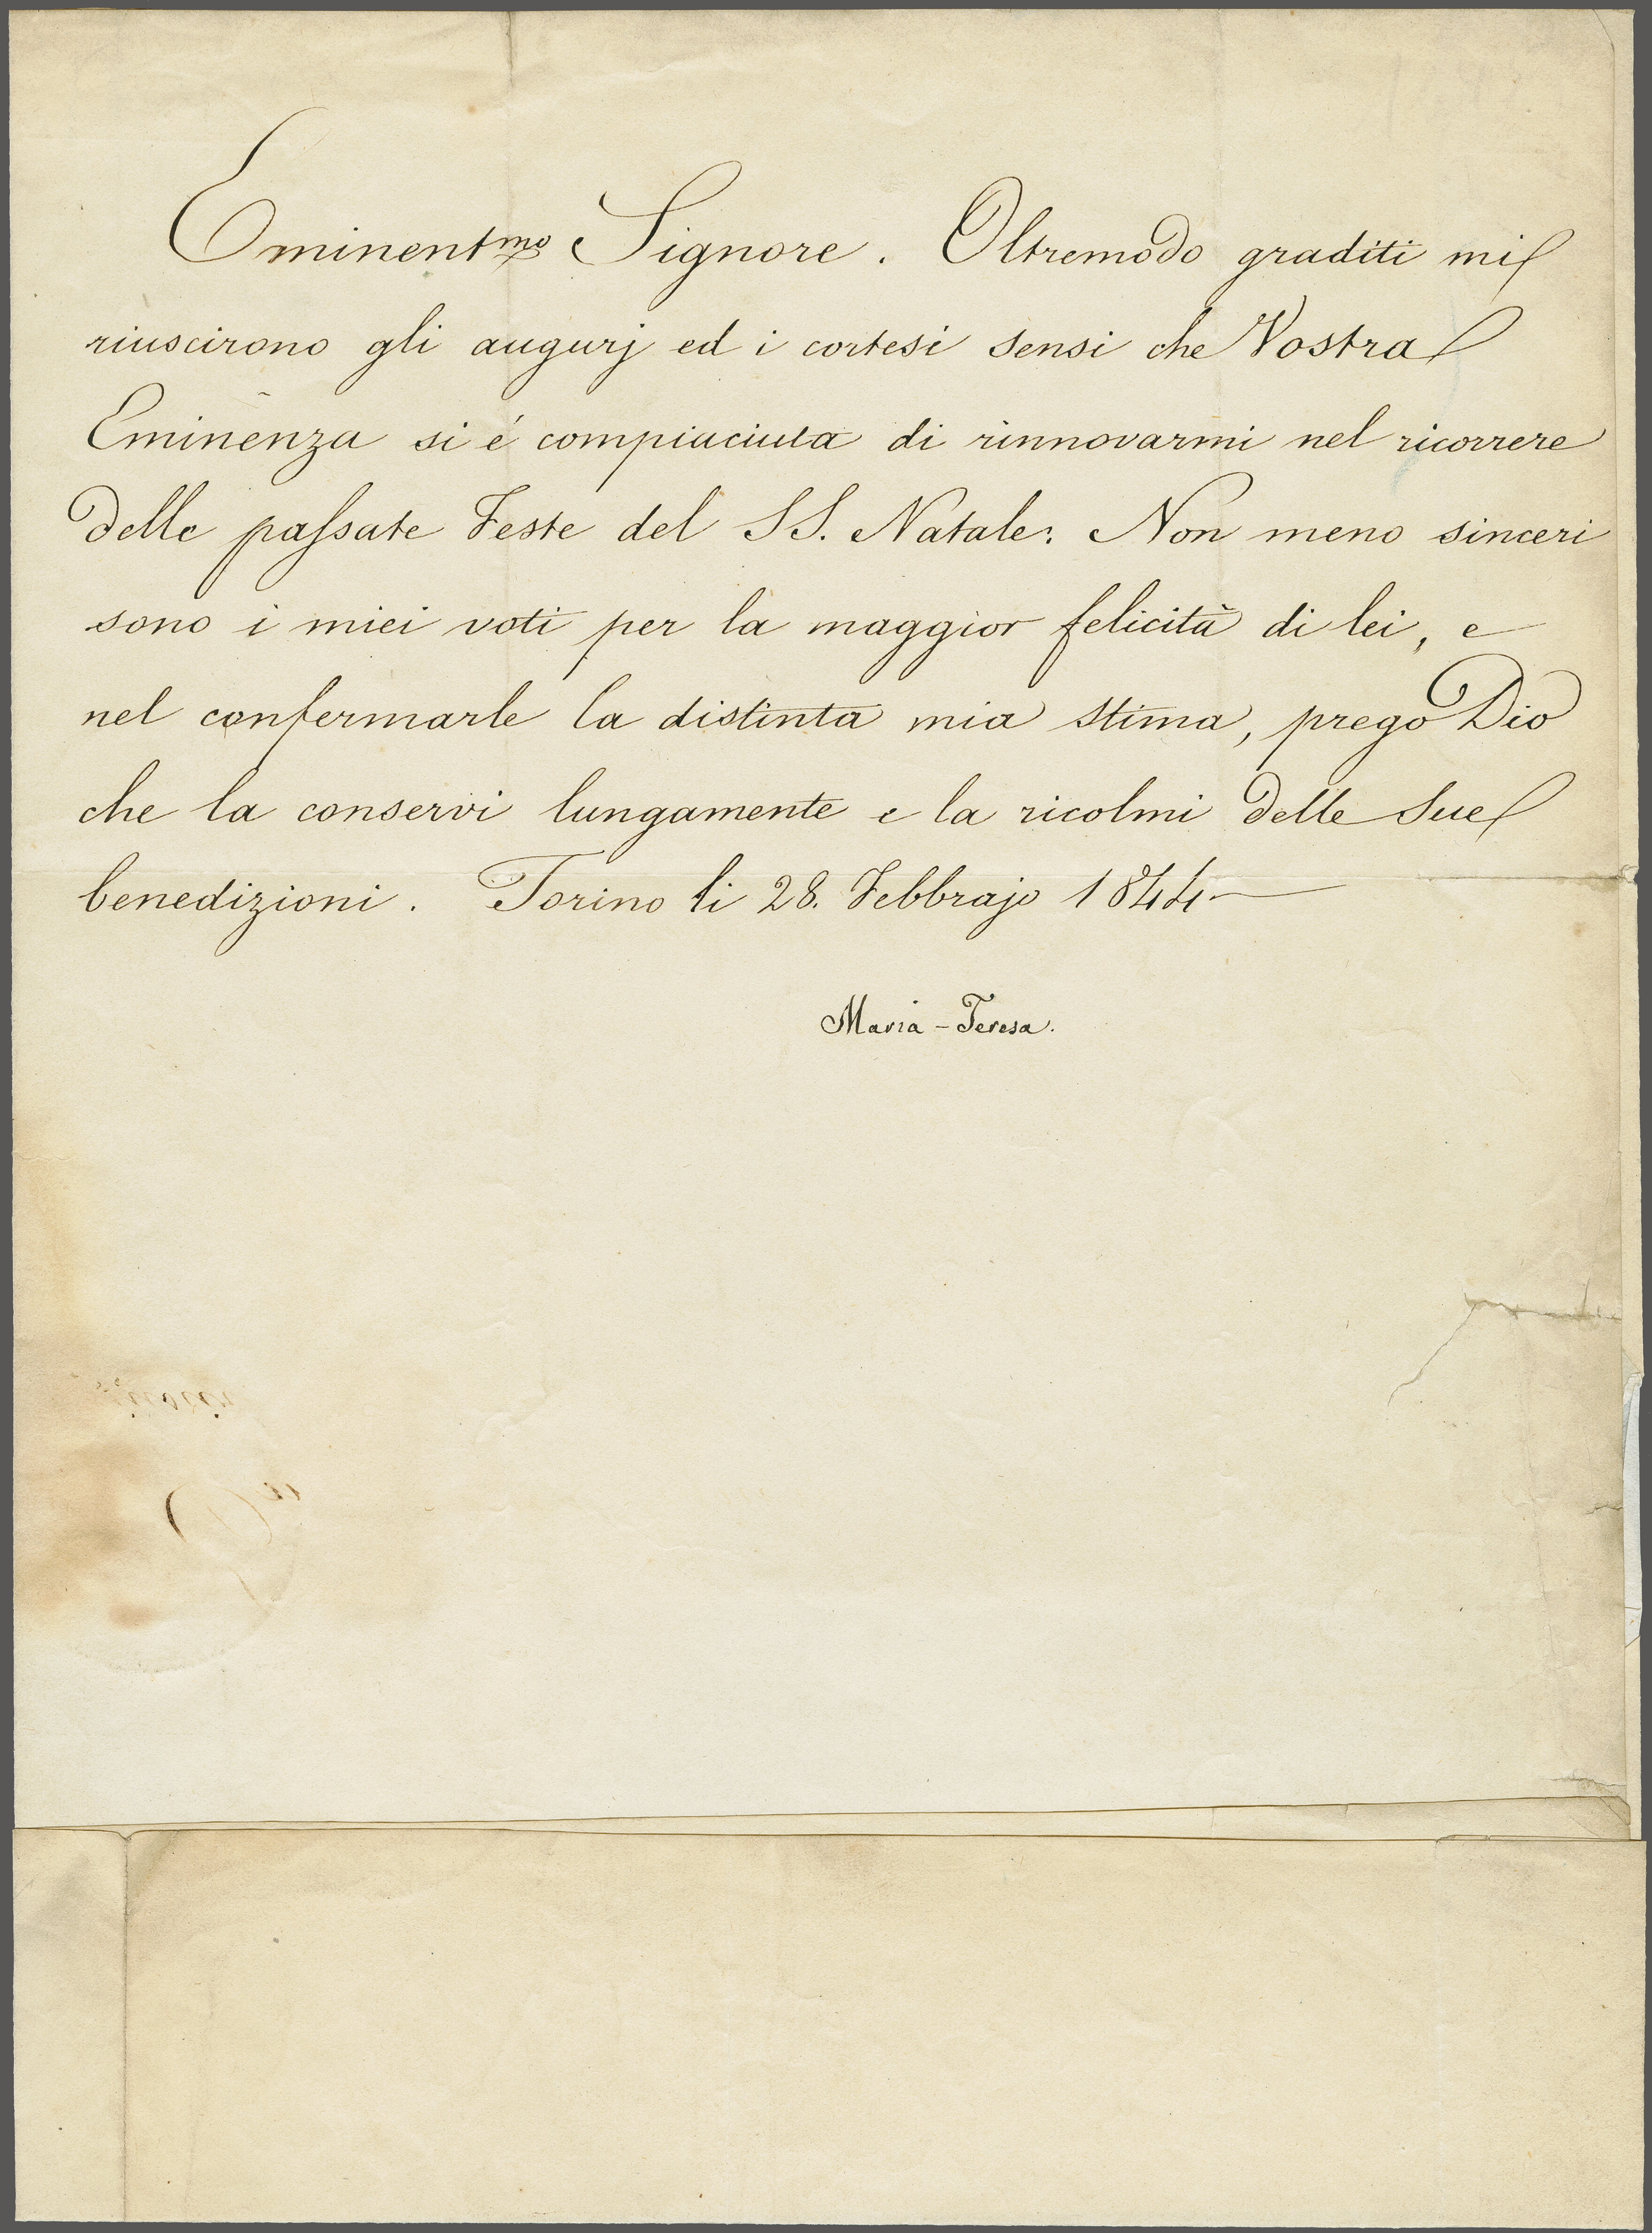 Eminentmo Signore. Oltremodo graditi mi
riuscirono gli augurj ed i cortesi sensi che Vostra
Eminenza si é compiaciuta di rinnovarmi nel ricorrere
delle paſsate Feste del SS. Natale: Non meno sinceri
sono i miei voti per la maggior felicità di lei, e
nel confermarle la distinta mia stima, prego Dio
che la conservi lungamente e la ricolmi delle Sue
benedizioni. Torino li 28. Febbrajo 1844
Maria-Teresa.